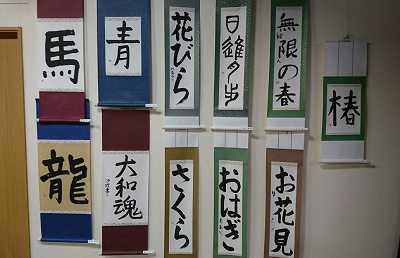 馬
青
花びら
日進月歩
無限の春
椿
龍
大和魂
さくら
おはぎ
お花見